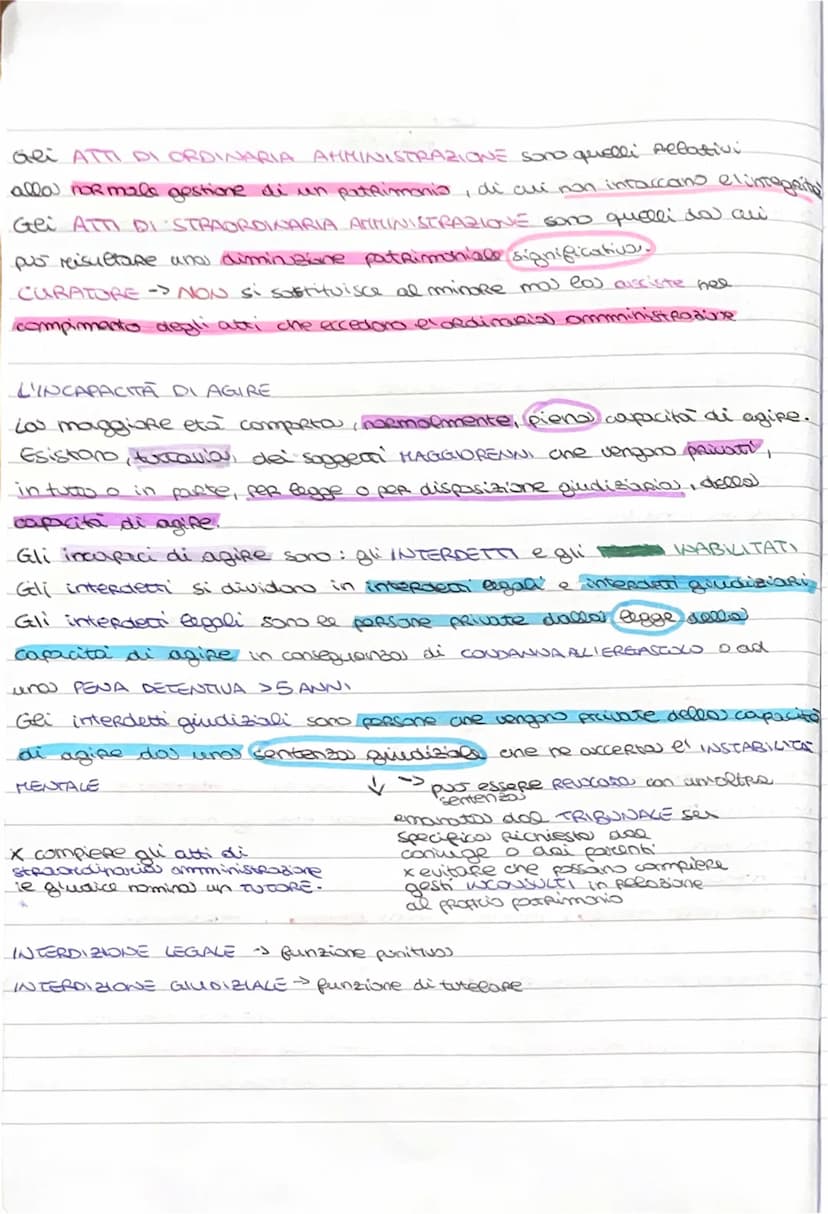 Gli ATTI DI ORDINARIA AMMINISTRAZIONE sono quelli relativi
alla normale gestione di un patrimonio, di cui non intaccano l'integrità
Gli ATTI DI STRAORDINARIA AMMINISTRAZIONE sono quelli da cui
può risultare una diminuzione patrimoniale significativa.
CURATORE -> NON si sostituisce al minore ma lo assiste nel
compimento degli atti che eccedono l'ordinaria amministrazione
L'INCAPACITÀ DI AGIRE
La maggiore età comporta, normalmente, piena capacità di agire.
Esistono, tuttavia, dei soggetti MAGGIORENNI che vengono privati,
in tutto o in parte, per legge o per disposizione giudiziaria, della
capacità di agire.
Gli incapaci di agire sono: gli INTERDETTI e gli INABILITATI
Gli interdetti si dividono in interdetti legali e interdetti giudiziari
Gli interdetti legali sono le persone private dalla legge della
capacità di agire in conseguenza di CONDANNA ALL'ERGASTOLO o ad
una PENA DETENTIVA >5 ANNI
Gli interdetti giudiziali sono persone che vengono private della capacità
di agire da una sentenza giudiziale che ne accerta l'INSTABILITÀ
MENTALE
↓ -> può essere REVOCATA con un'altra
sentenza
emanata dal TRIBUNALE su
specifica richiesta del
coniuge o dei parenti
x evitare che possano compiere
gesti INCONSULTI in relazione
al proprio patrimonio
x compiere gli atti di
straordinaria amministrazione
il giudice nomina un TUTORE.
INTERDIZIONE LEGALE -> funzione punitiva
INTERDIZIONE GIUDIZIALE -> funzione di tutelare